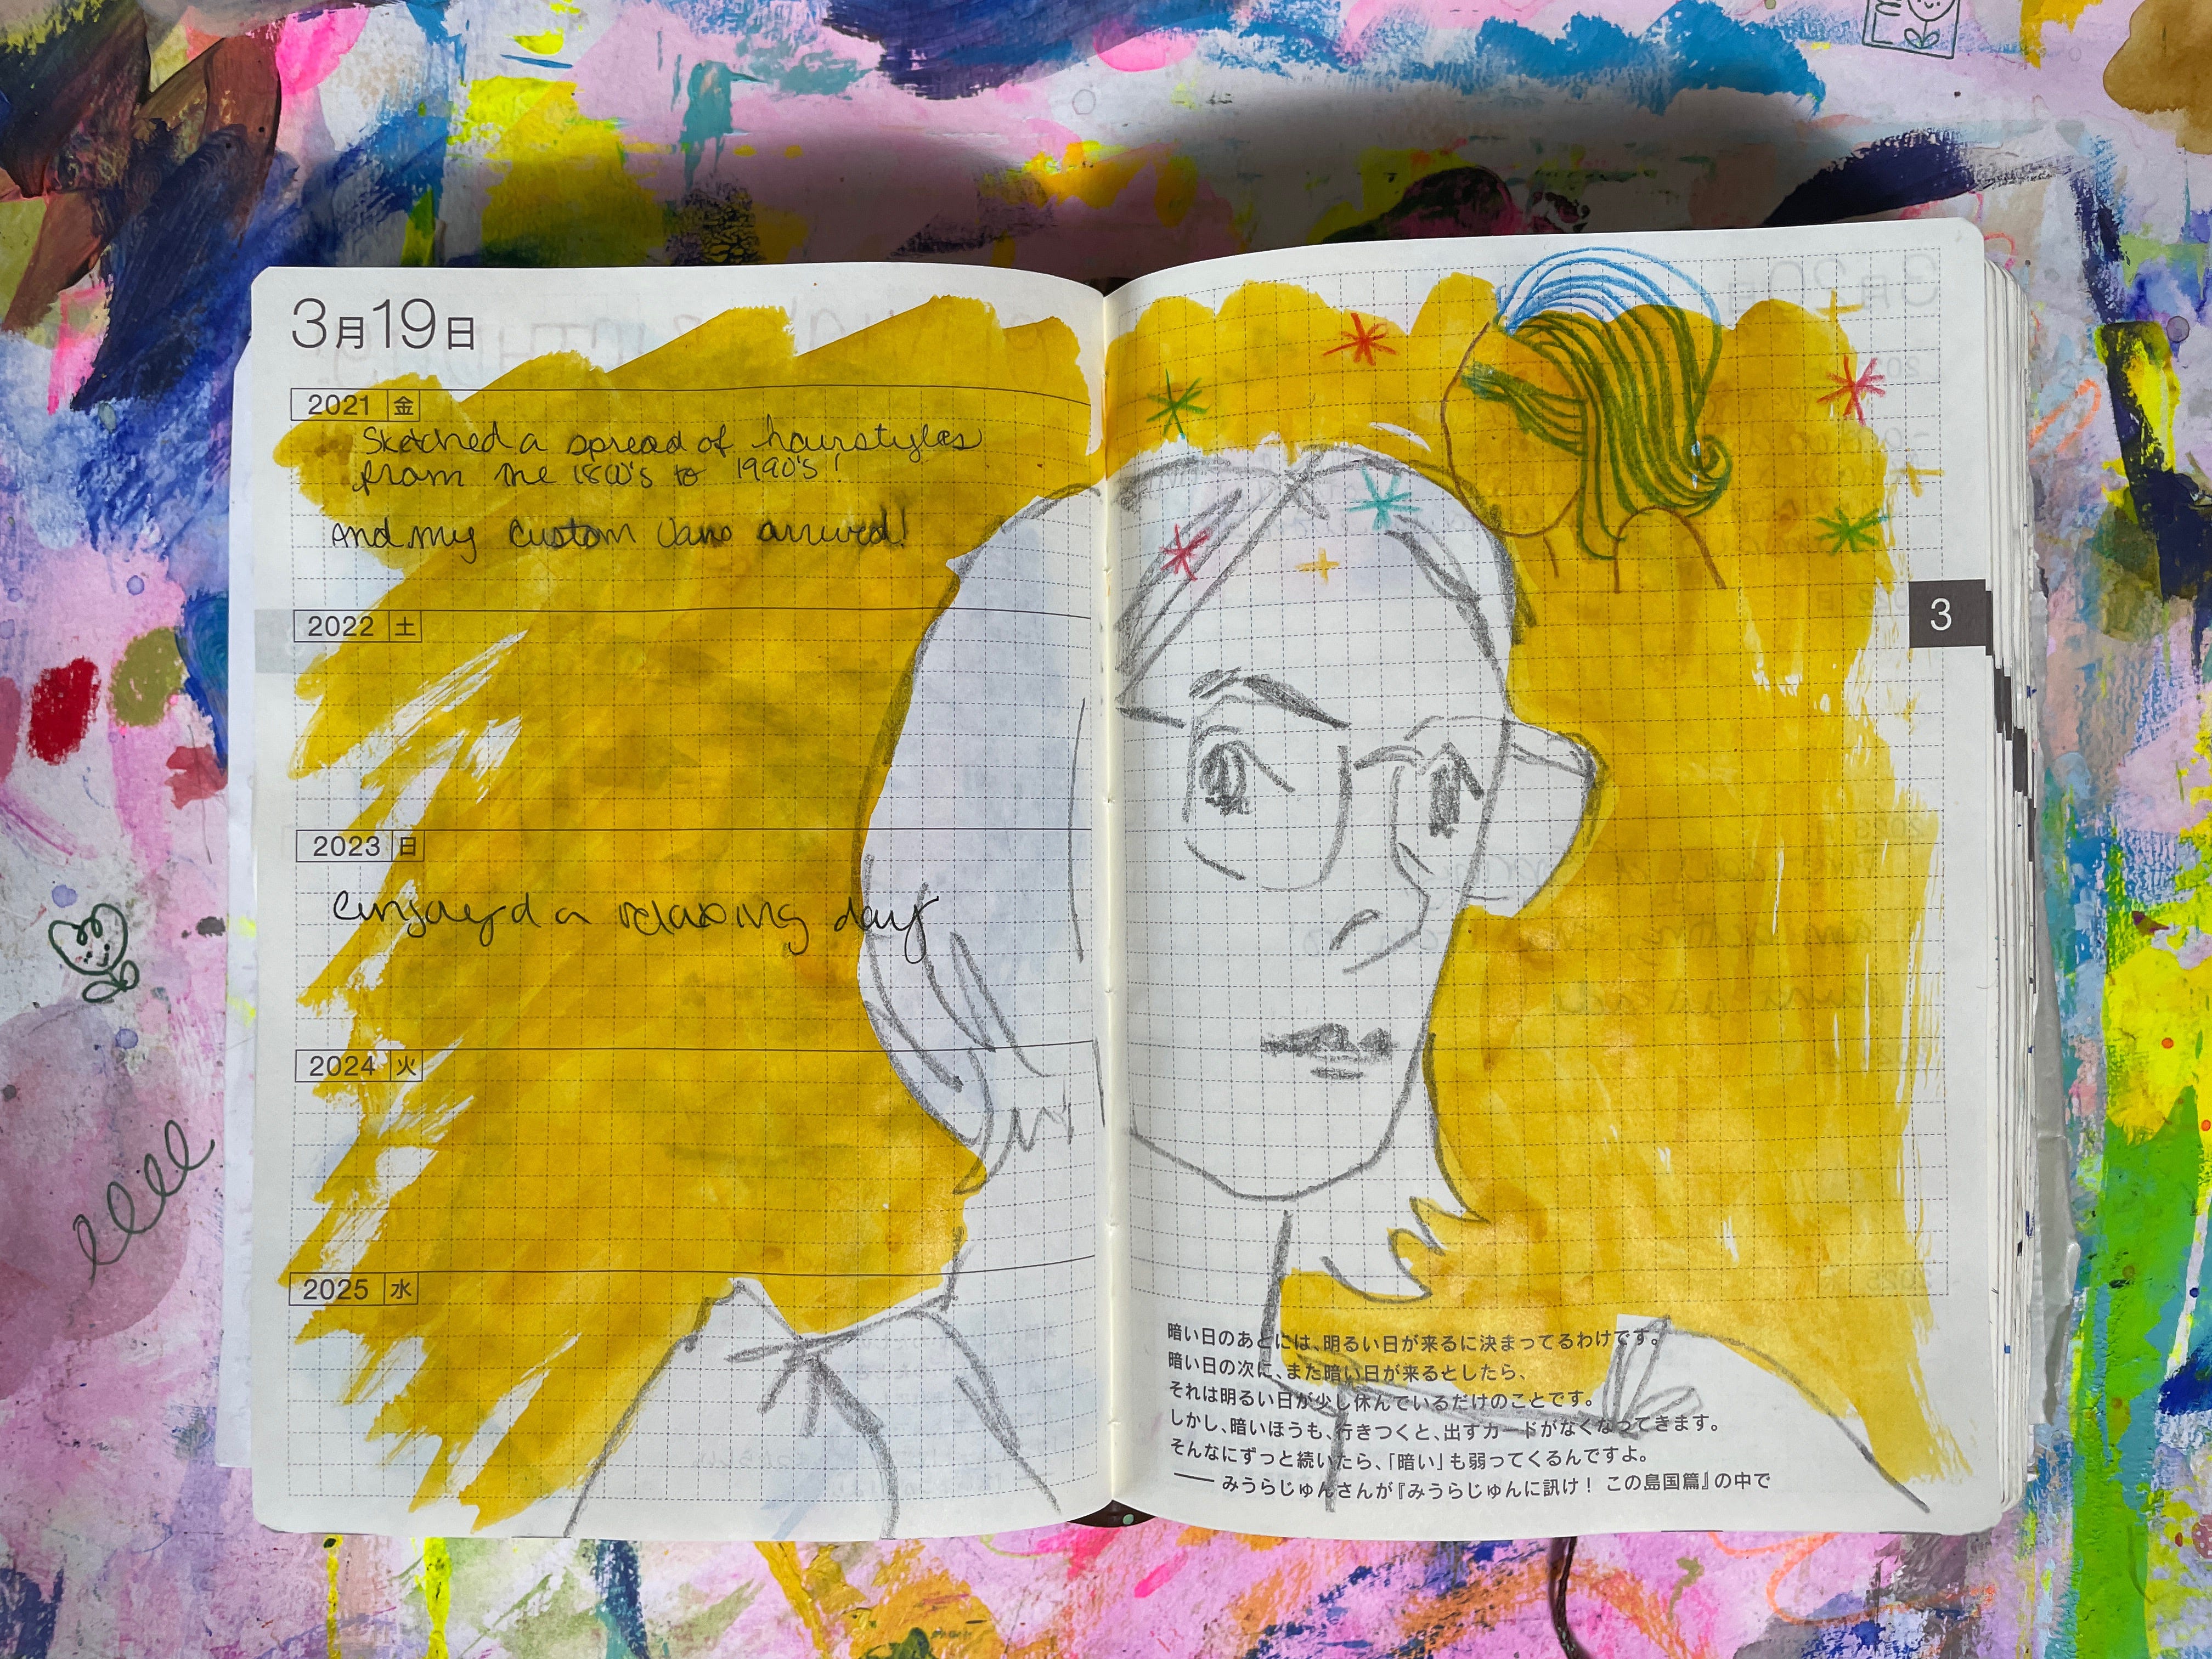 3月19日
2021 金
Sketched a spread of hairstyles
from the 1800's to 1990's!
And my custom Vans arrived!
2022 土
2023 日
enjoyed a relaxing day
2024 火
2025 水
3
暗い日のあとには、明るい日が来るに決まってるわけです。
暗い日の次に、また暗い日が来るとしたら、
それは明るい日が少し休んでいるだけのことです。
しかし、暗いほうも、行きつくと、出すカードがなくなってきます。
そんなにずっと続いたら、「暗い」も弱ってくるんですよ。
—— みうらじゅんさんが『みうらじゅんに訊け! この島国篇』の中で